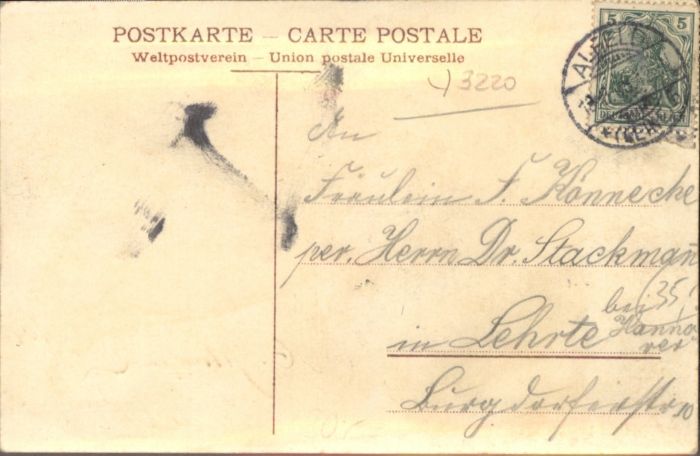 POSTKARTE – CARTE POSTALE
Weltpostverein – Union postale Universelle
3220
5 5
ALFELD
An
Fräulein F. Könnecke
per. Herrn Dr. Stackman
bei
in Lehrte Hanno
ver
Burgdorferstr